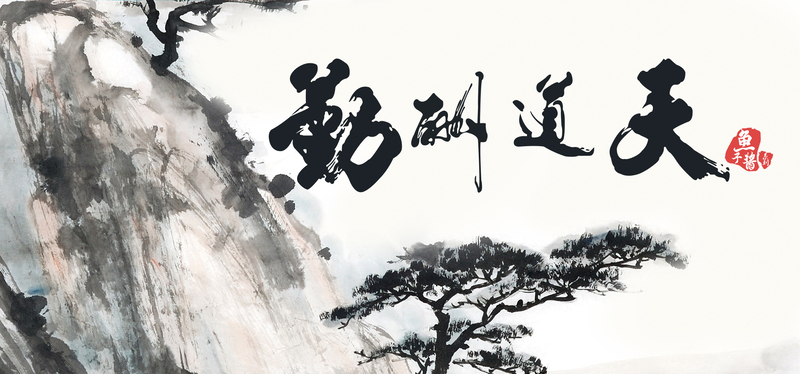 天道酬勤
鱼子酱